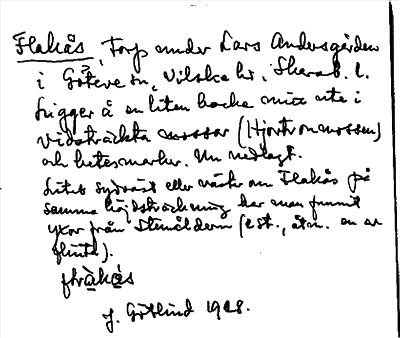 Flakås, Torp under Lars Andersgården
i Göteve sn, Vilske hd, Skarab. l.
Ligger å en liten backe mitt ute i
vidsträckta mossar (Hjortronmossen)
och betesmarker. Nu nedlagt.
Litet sydväst eller väster om Flakås på
samma höjdsträckning har man funnit
yxor från stenåldern (est., åtm. en av
flinta).
J. Götlind 1928.